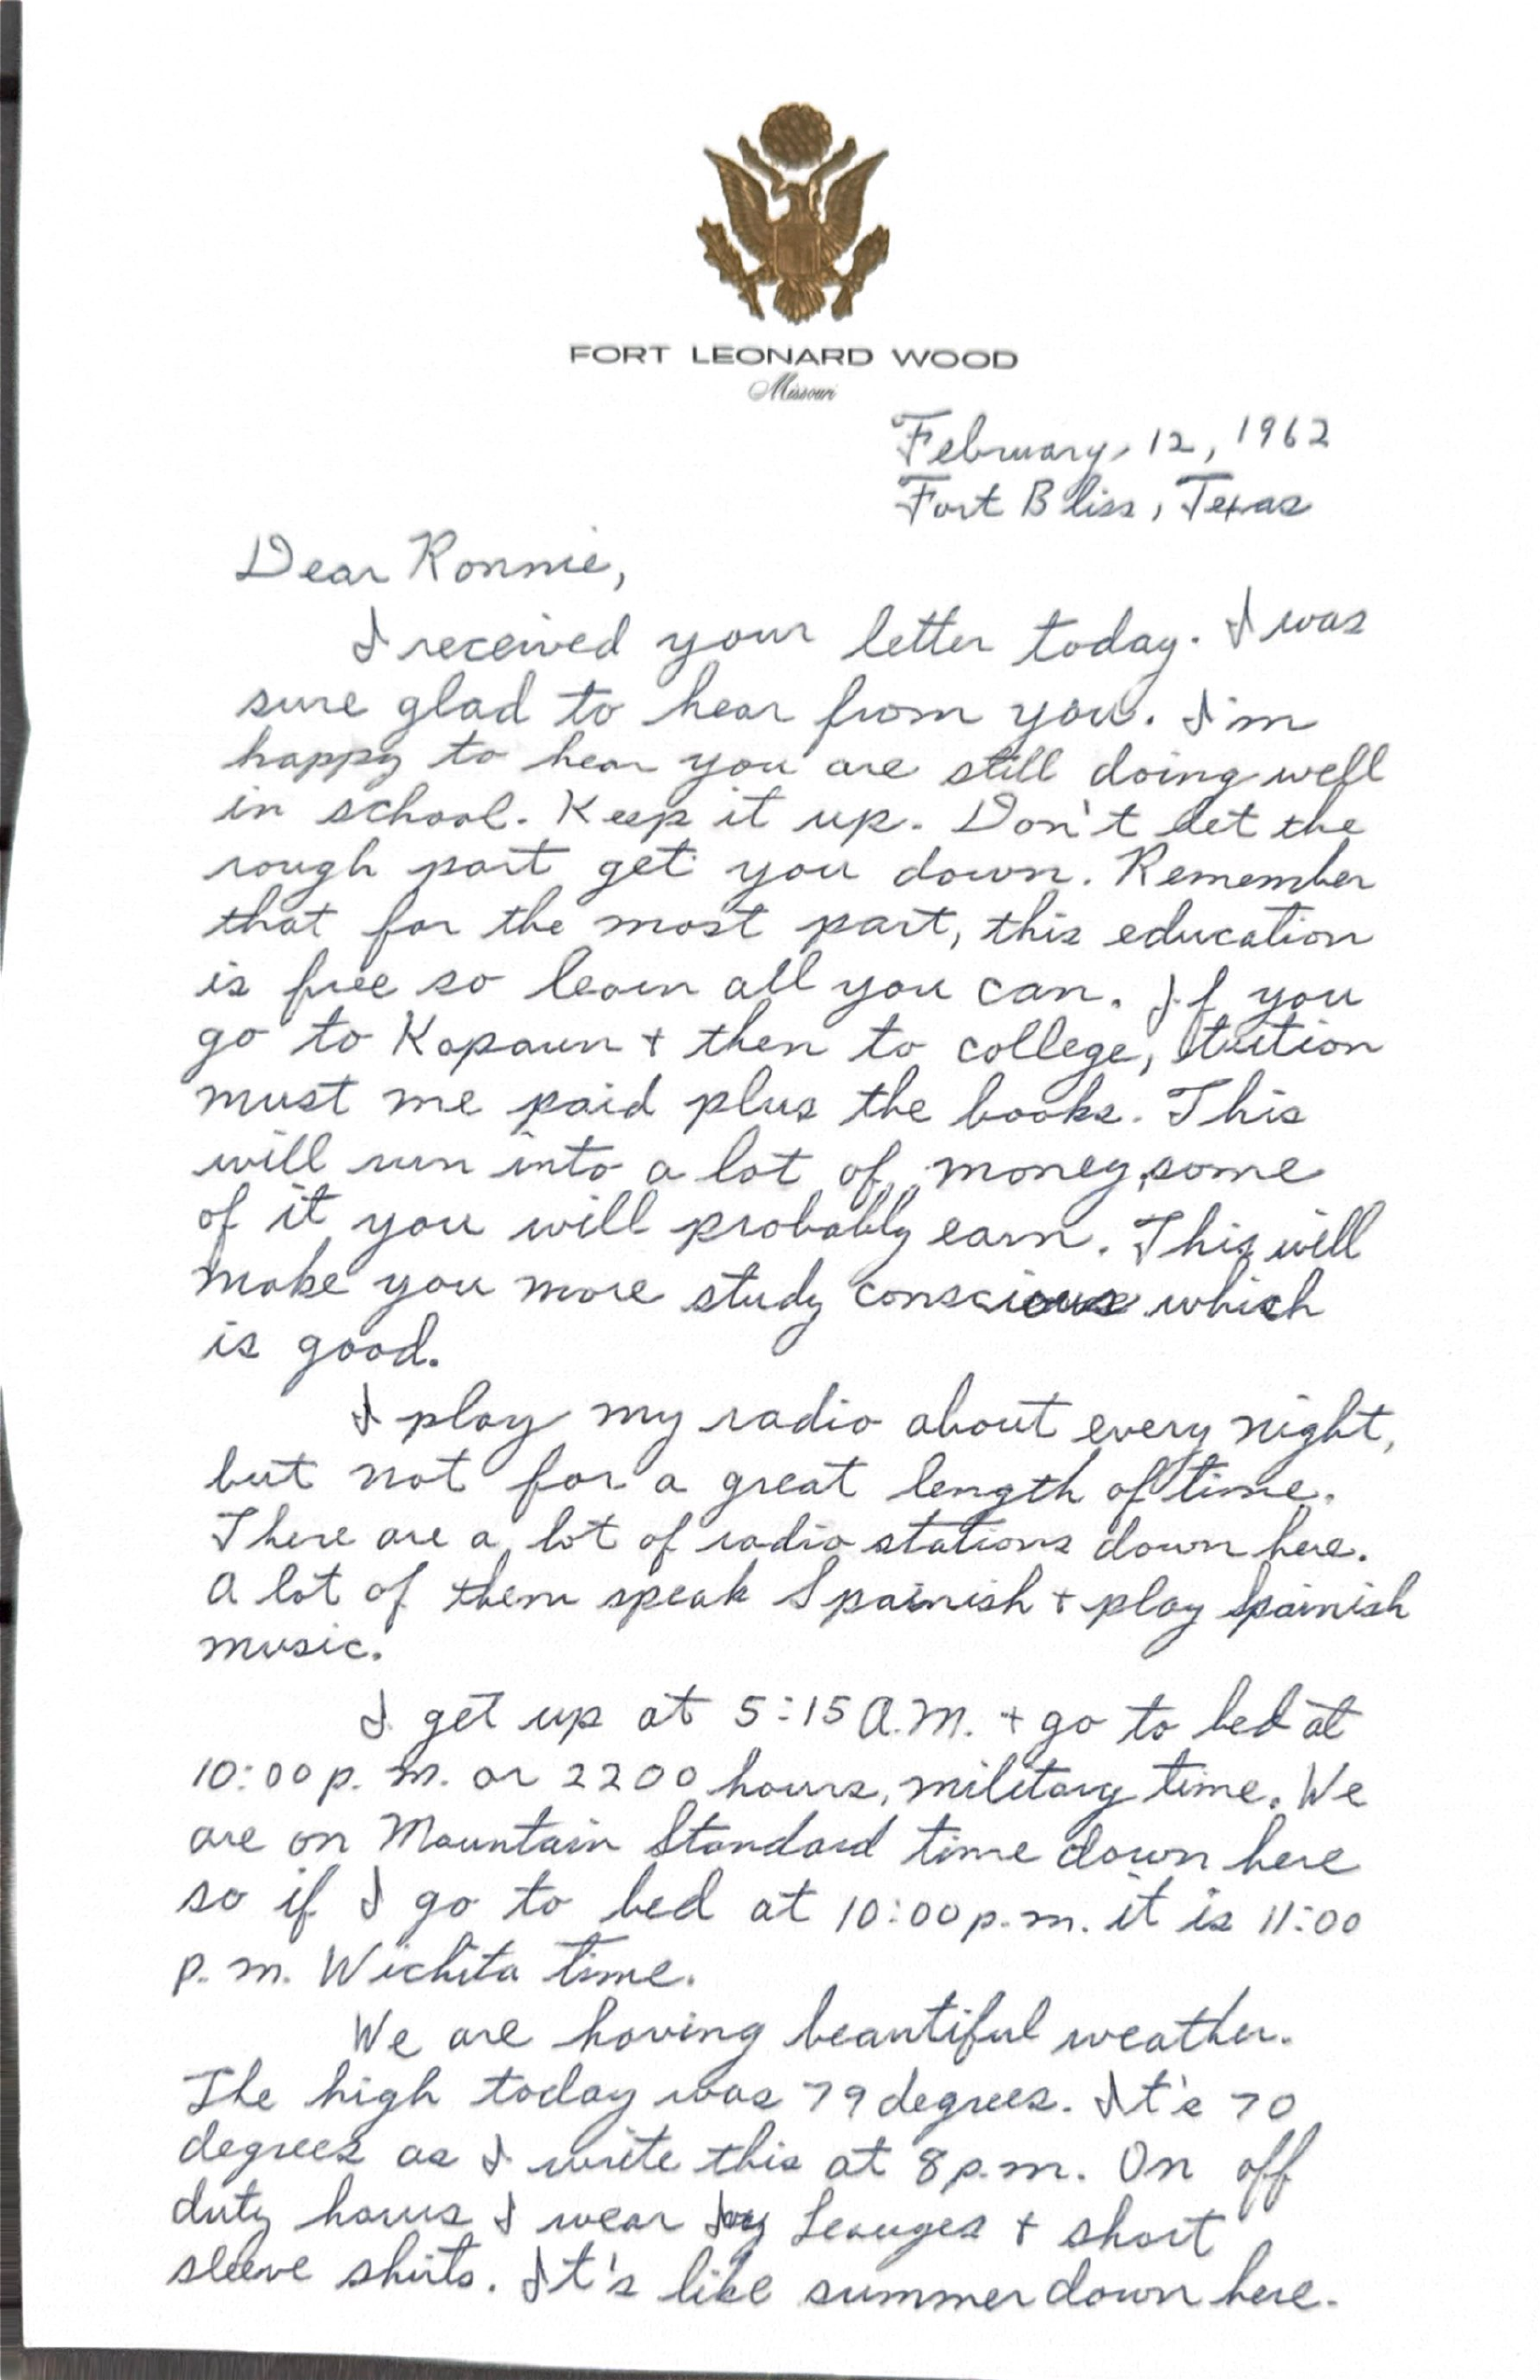 FORT LEONARD WOOD
Missouri
February, 12, 1962
Fort Bliss, Texas
Dear Ronnie,
I received your letter today. I was
sure glad to hear from you. I'm
happy to hear you are still doing well
in school. Keep it up. Don't let the
rough part get you down. Remember
that for the most part, this education
is free so learn all you can. If you
go to Kapaun + then to college, tuition
must me paid plus the books. This
will run into a lot of money, some
of it you will probably earn. This will
make you more study conscious which
is good.
I play my radio about every night,
but not for a great length of time.
There are a lot of radio stations down here.
A lot of them speak Spainish + play Spainish
music.
I get up at 5:15 A.M. + go to bed at
10:00 p.m. or 2200 hours, military time. We
are on Mountain Standard time down here
so if I go to bed at 10:00 p.m. it is 11:00
p.m. Wichita time.
We are having beautiful weather.
The high today was 79 degrees. It's 70
degrees as I write this at 8 p.m. On off
duty hours I wear Leauges + short
sleeve shirts. It's like summer down here.